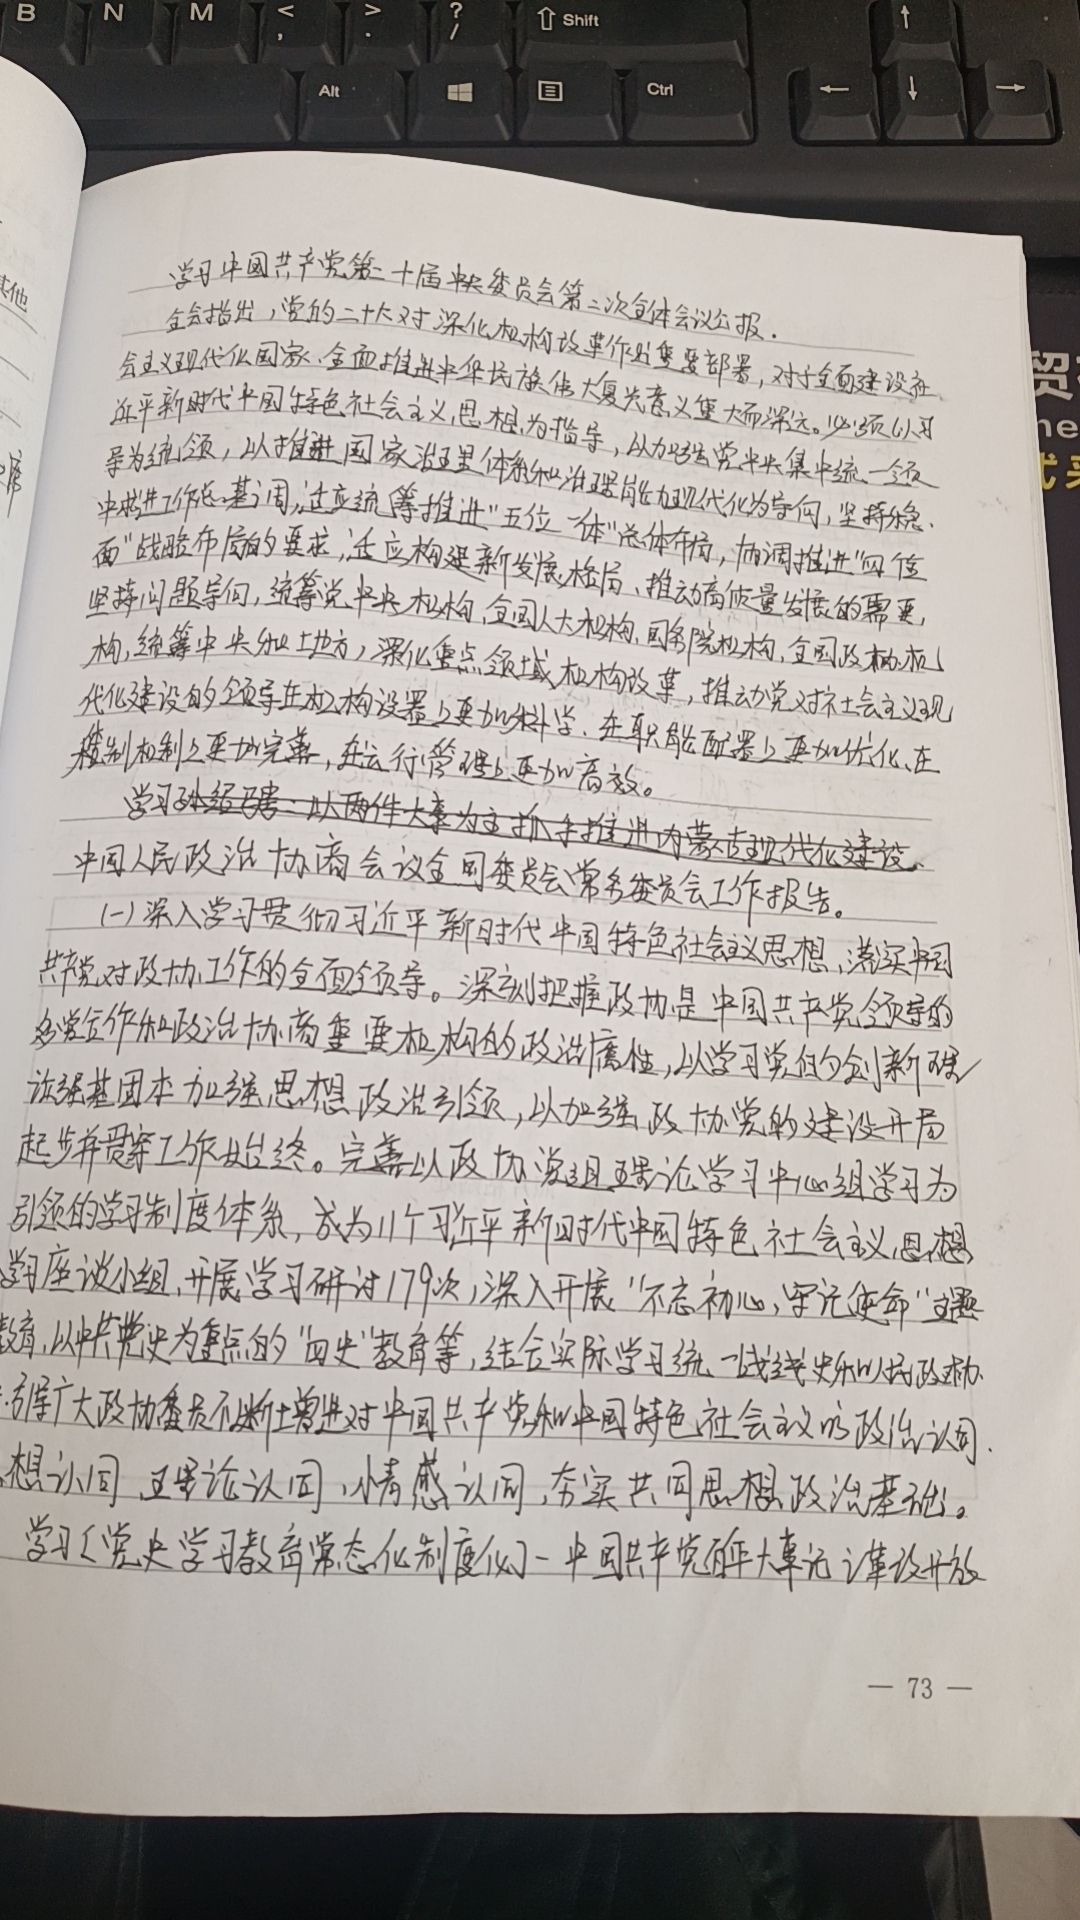 B N M < , > . ? / ⇧ Shift ↑
Alt Ctrl ← ↓ →
其他
席
贸
ne
式采
学习中国共产党第二十届中央委员会第二次全体会议公报.
全会指出,党的二十大对深化机构改革作出重要部署,对于全面建设社
会主义现代化国家、全面推进中华民族伟大复兴意义重大而深远。必须以习
近平新时代中国特色社会主义思想为指导,以加强党中央集中统一领
导为统领,以推进国家治理体系和治理能力现代化为导向,坚持稳
中求进工作总基调,适应统筹推进“五位一体”总体布局,协调推进“四个全
面”战略布局的要求,适应构建新发展格局、推动高质量发展的需要,
坚持问题导向,统筹党中央机构、全国人大机构、国务院机构、全国政协机
构,统筹中央和地方,深化重点领域机构改革,推动党对社会主义现
代化建设的领导在机构设置上更加科学、在职能配置上更加优化、在
体制机制上更加完善,在运行管理上更加高效。
学习孙绍骋:以两件大事为主抓手推进内蒙古现代化建设.
中国人民政治协商会议全国委员会常务委员会工作报告。
(一)深入学习贯彻习近平新时代中国特色社会主义思想,落实中国
共产党对政协工作的全面领导。深刻把握政协是中国共产党领导的
多党合作和政治协商重要机构的政治属性,以学习党的创新理
论强基固本加强思想政治引领,以加强政协党的建设开局
起步并贯穿工作始终。完善以政协党组理论学习中心组学习为
引领的学习制度体系,成为11个习近平新时代中国特色社会主义思想
学习座谈小组,开展学习研讨179次,深入开展“不忘初心,牢记使命”主题
教育,以中共党史为重点的“四史”教育等,结合实际学习统一战线史和人民政协
引导广大政协委员不断增进对中国共产党和中国特色社会主义的政治认同.
想认同、理论认同、情感认同,夯实共同思想政治基础。
学习《党史学习教育常态化制度化》-中国共产党百年大事记 改革开放
— 73 —